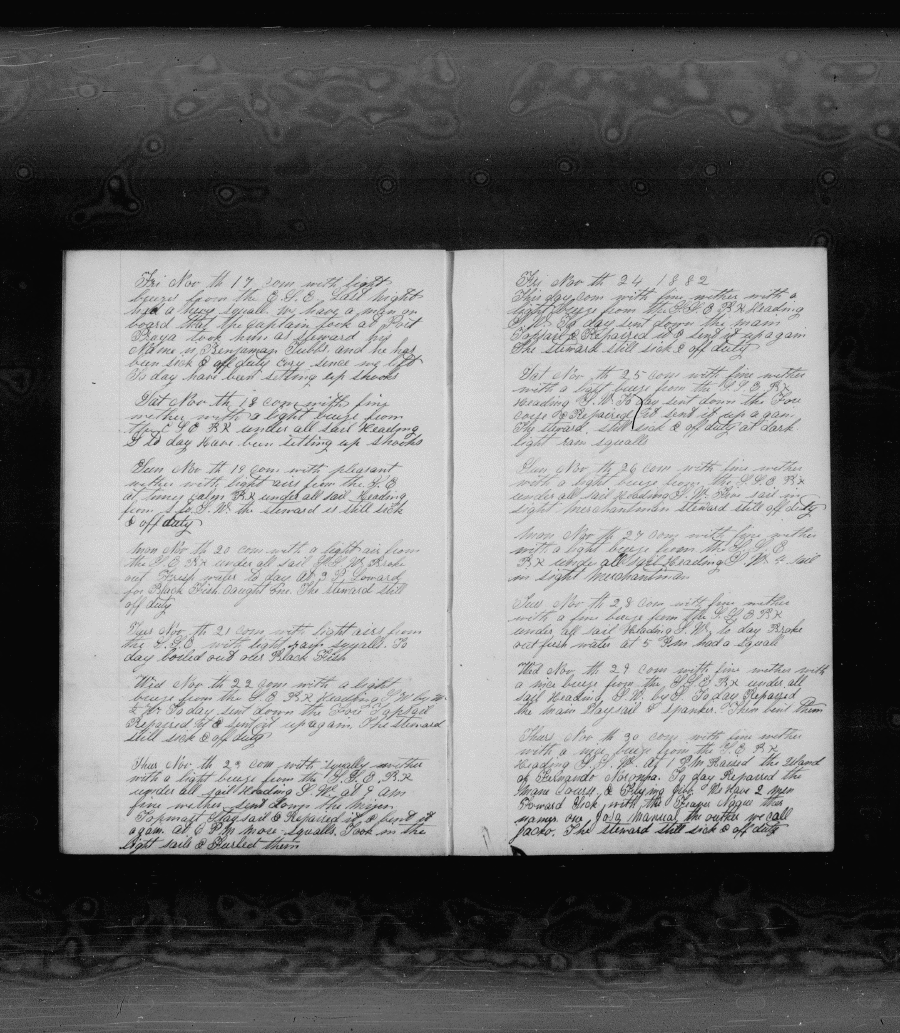 Fri Nov th 17 Com with light
breeze from the E S E Last night
had a hevy squall we have a man on
board that the Captain took at Port
Praya took him as steward his
Name is Benjaman Tubbs and he has
ben sick & off duty evry since we left
To day have ben setting up shocks
Sat Nov th 18 Com with fine
wether with a light breeze from
the E S E BX under all sail Heading
S to day Have ben setting up shocks
Sun Nov th 19 Com with pleasant
wether with light airs from the S E
at times calm BX under all sail Heading
from S to S.W. the steward is still sick
& off duty
Mon Nov th 20 Com with a light air from
the S E BX under all sail S.S.W. Broke
out Fresh water to day At 3 P Lowerd
for Black Fish Caught one. The steward still
off duty
Tues Nov th 21 Com with light airs from
the S.S.E with light rain squalls. To
day boiled out our Black Fish
Wed Nov th 22 Com with a light
breeze from the S E BX Heading S W by W
To day sent down the Fore Topsail
Repaired it & sent it up again. The steward
still sick & off duty
Thur Nov th 23 Com with squaly wether
with a light breeze from the S.S.E. BX
under all sail Heading S.W. at 9 am
fine wether sent down the Mizen
Topmast Staysail & Repaired it & sent it
again. At 6 P.M. more squalls. Took in the
light sails & Furled them
Fri Nov th 24 1882
This day com with fine wether with a
light breeze from the S.S.E BX Heading
S.W. To day sent down the main
Topsail & Repaired it & sent it up again
The steward still sick & off duty
Sat Nov th 25 com with fine wether
with a light breeze from the S.S.E BX
Heading S.W. To day sent down the Fore
& Repaired it & sent it up a gan
The steward still sick & off duty at dark
light rain squalls
Sun Nov th 26 com with fine wether
with a light breeze from the S.S.E BX
under all sail Heading S.W. One sail in
sight merchantman steward still off duty
Mon Nov th 27 com with fine wether
with a light breeze from the S.S.E
BX under all sail Heading S.W. sail
in sight Merchantman
Tues Nov th 28 Com with fine wether
with a fine breeze from the S.S.E BX
under all sail Heading S.W. to day Broke
out fresh water at 5 P.m had a squall
Wed Nov th 29 Com with fine wether with
a nice breeze from the S.S.E BX under all
sail Heading S.W. by S To day Repaired
the Main Staysail & Spanker. Then bent them
Thurs Nov th 30 com with fine wether
with a nice breeze from the S.E BX
Heading S.S.W. At 1 P.M Raised the Island
of Fernando Noronpa. To day Repaired the
Main Coursy & Flying Gib We Have 2 men
Foward Sick, with the Feaver Ague ther
names one Jola Manual the outher we call
Jacko. The steward still sick & off duty